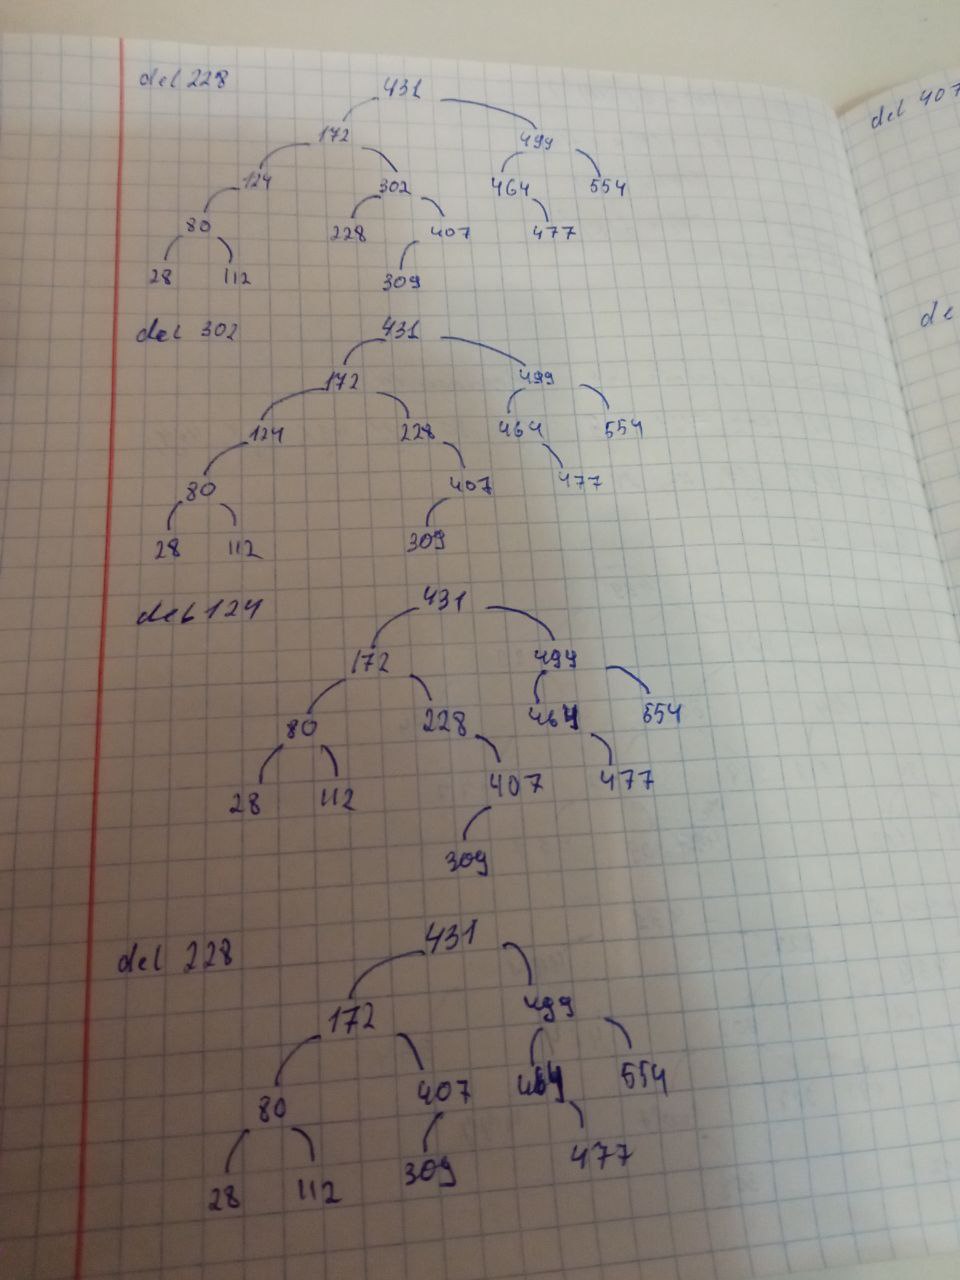 del 228
431
172 499
124 302 464 554
80 228 407 477
28 112 309
del 302
431
172 499
124 228 464 554
80 407 477
28 112 309
del 124
431
172 499
80 228 464 554
28 112 407 477
309
del 228
431
172 499
80 407 464 554
28 112 309 477
del 407
de